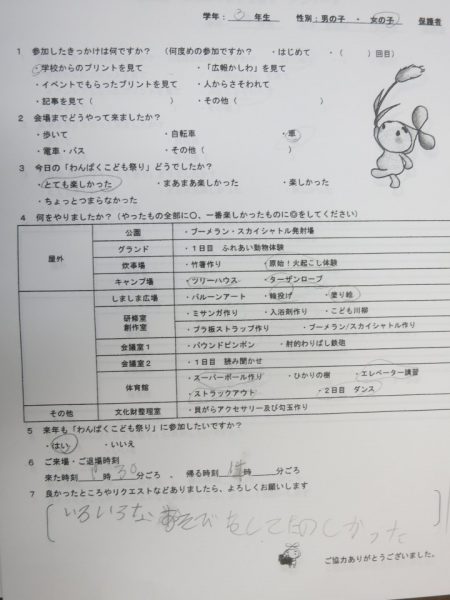 学年：3 年生 性別：男の子 ・ 女の子 保護者
1 参加したきっかけは何ですか？ (何度めの参加ですか？ ・はじめて ・( )回目)
・学校からのプリントを見て ・「広報かしわ」を見て
・イベントでもらったプリントを見て ・人からさそわれて
・記事を見て( ) ・その他( )
2 会場までどうやって来ましたか？
・歩いて ・自転車 ・車
・電車・バス ・その他( )
3 今日の「わんぱくこども祭り」どうでしたか？
・とても楽しかった ・まあまあ楽しかった ・楽しかった
・ちょっとつまらなかった
4 何をやりましたか？(やったもの全部に○、一番楽しかったものに◎をしてください)
屋外 公園 ・ブーメラン・スカイシャトル発射場
グランド ・1日目 ふれあい動物体験
炊事場 ・竹箸作り ・原始！火起こし体験
キャンプ場 ・ツリーハウス ・ターザンロープ
しましま広場 ・バルーンアート ・輪投げ ・塗り絵
研修室 ・ミサンガ作り ・入浴剤作り ・こども川柳
創作室 ・プラ板ストラップ作り ・ブーメラン/スカイシャトル作り
会議室1 ・パウンドピンポン ・射的わりばし鉄砲
会議室2 ・1日目 読み聞かせ
体育館 ・スーパーボール作り ・ひかりの樹 ・エレベーター講習
・ストラックアウト ・2日目 ダンス
その他 文化財整理室 ・貝がらアクセサリー及び勾玉作り
5 来年も「わんぱくこども祭り」に参加したいですか？
・はい ・いいえ
6 ご来場・ご退場時刻
来た時刻 時 30 分ごろ 、 帰る時刻 時 分ごろ
7 良かったところやリクエストなどありましたら、よろしくお願いします
いろいろなあそびをしてたのしかった
ご協力ありがとうございました。